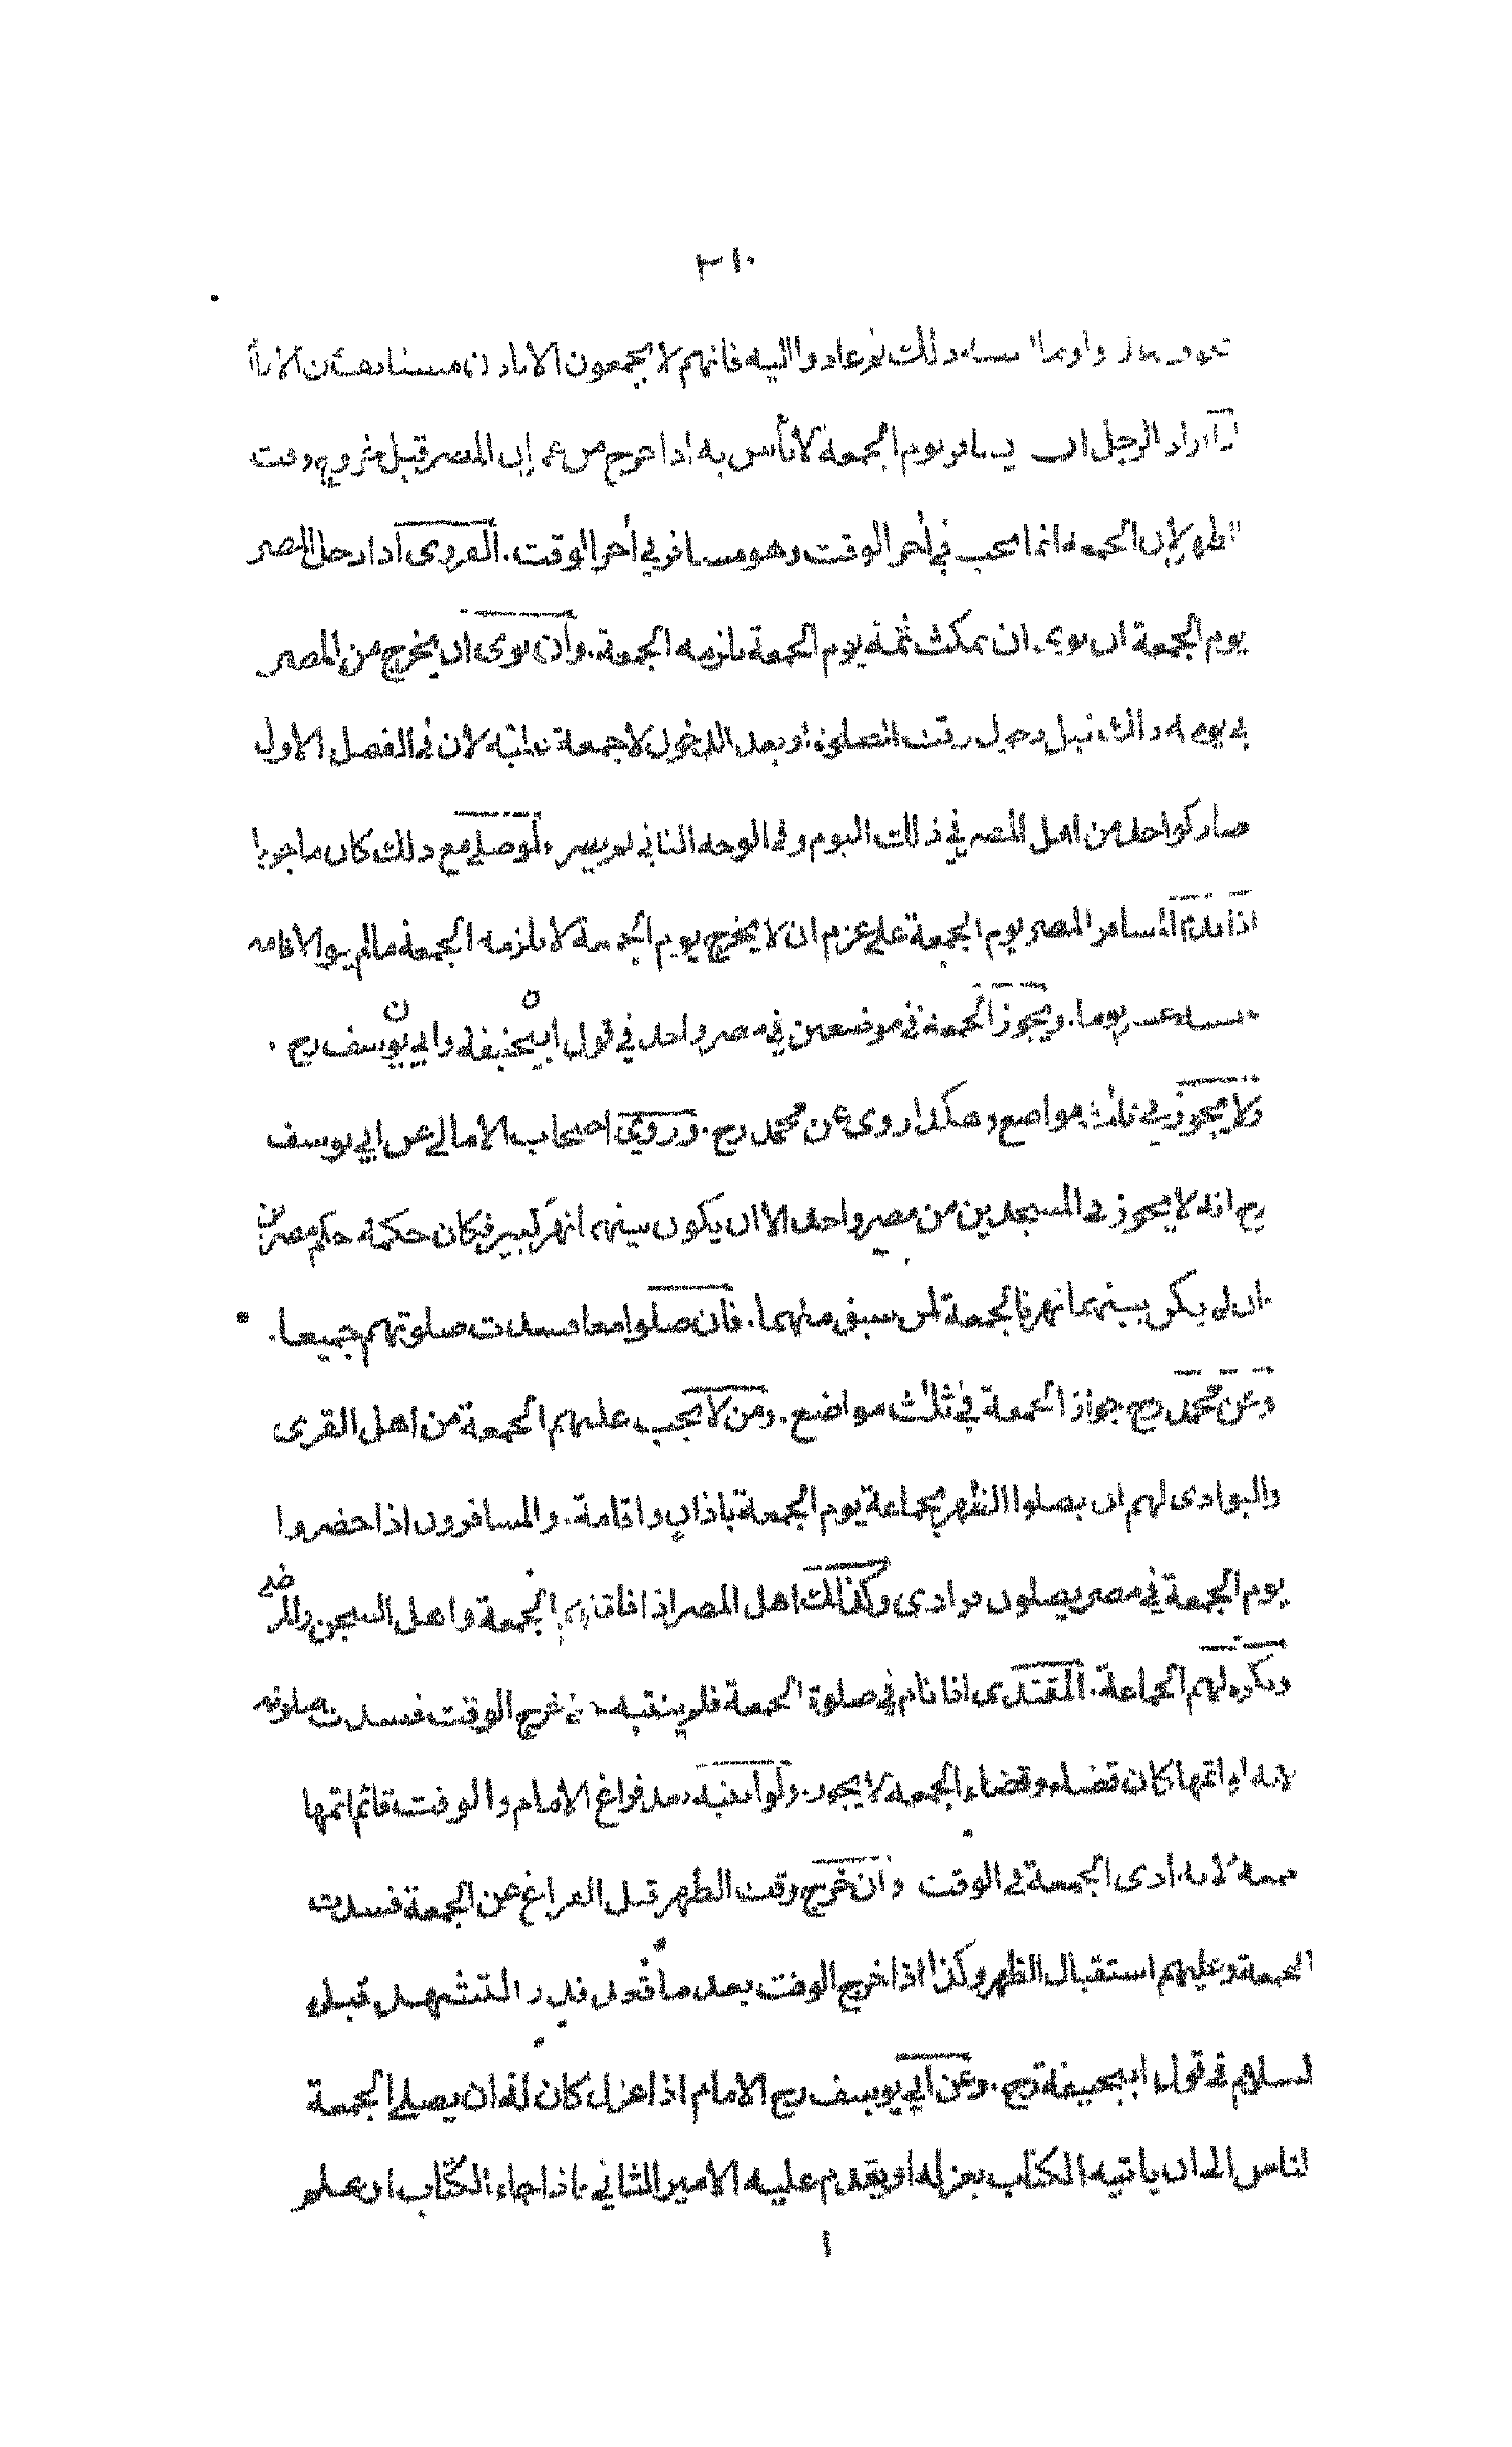 ٢١٠
ذلك ثم عادوا اليه فانهم لا يجمعون الا باذن مستانف
اراد الرجل ان يسافر يوم الجمعة لا بأس به اذا خرج من عمران المصر قبل خروج وقت
الظهر لان الجمعة انما تجب في أخر الوقت وهو مسافر في أخر الوقت. القروى اذا دخل المصر
يوم الجمعة ان نوى ان يمكث ثمة يوم الجمعة يلزمه الجمعة. وان نوى ان يخرج من المصر
في يومه ذلك قبل دخول وقت الصلوة او بعد الدخول لا جمعة عليه لان في الفصل الاول
صار كواحد من اهل المصر في ذلك اليوم وفي الوجه الثاني لم يصر ولو صلى مع ذلك كان ماجورا
اذا قدم المسافر المصر يوم الجمعة على عزم ان لا يخرج يوم الجمعة لا يلزمه الجمعة مالم ينو الاقامة
خمسة عشر يوما. ويجوز الجمعة في موضعين في مصر واحد في قول ابيحنيفة وابي يوسف رح .
ولا يجوز في ثلث مواضع وهكذا روى عن محمد رح. وروى اصحاب الامالي عن ابي يوسف
رح انه لا يجوز في المسجدين من مصر واحد الا ان يكون بينهم انهر كبير فكان حكمه حكم مصرين
ان لم يكن بينهما نهر فالجمعة لمن سبق منهما. فان صلوا معا فسدت صلوتهم جميعا.
وعن محمد رح جواز الجمعة في ثلث مواضع. ومن لا يجب عليهم الجمعة من اهل القرى
والبوادى لهم ان يصلوا الظهر بجماعة يوم الجمعة باذان واقامة. والمسافرون اذا حضروا
يوم الجمعة في مصر يصلون فرادى وكذلك اهل المصر اذا فاتتهم الجمعة واهل السجن والمرضى
ويكره لهم الجماعة. المقتدى اذا نام في صلوة الجمعة فلم ينتبه حتى خرج الوقت فسدت صلوته
لانه لو اتمها كان قضاء وقضاء الجمعة لا يجوز. ولو انتبه بعد فراغ الامام والوقت قائم اتمها
جمعة لانه ادى الجمعة في الوقت وان خرج وقت الظهر قبل الفراغ عن الجمعة فسدت
الجمعة وعليهم استقبال الظهر وكذا اذا خرج الوقت بعد ما قعد قدر التشهد قبل
لسلام في قول ابيحنيفة رح. وعن ابي يوسف رح الامام اذا عزل كان له ان يصلي الجمعة
لناس الى ان ياتيه الكتاب بعزله او يقدم عليه الامير الثاني فاذا جاء الكتاب او علم